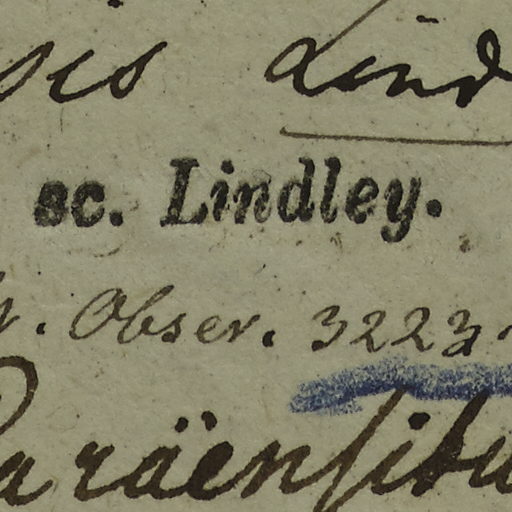 sis Lind
sc. Lindley.
r. Obser. 3223.
Paräensibu